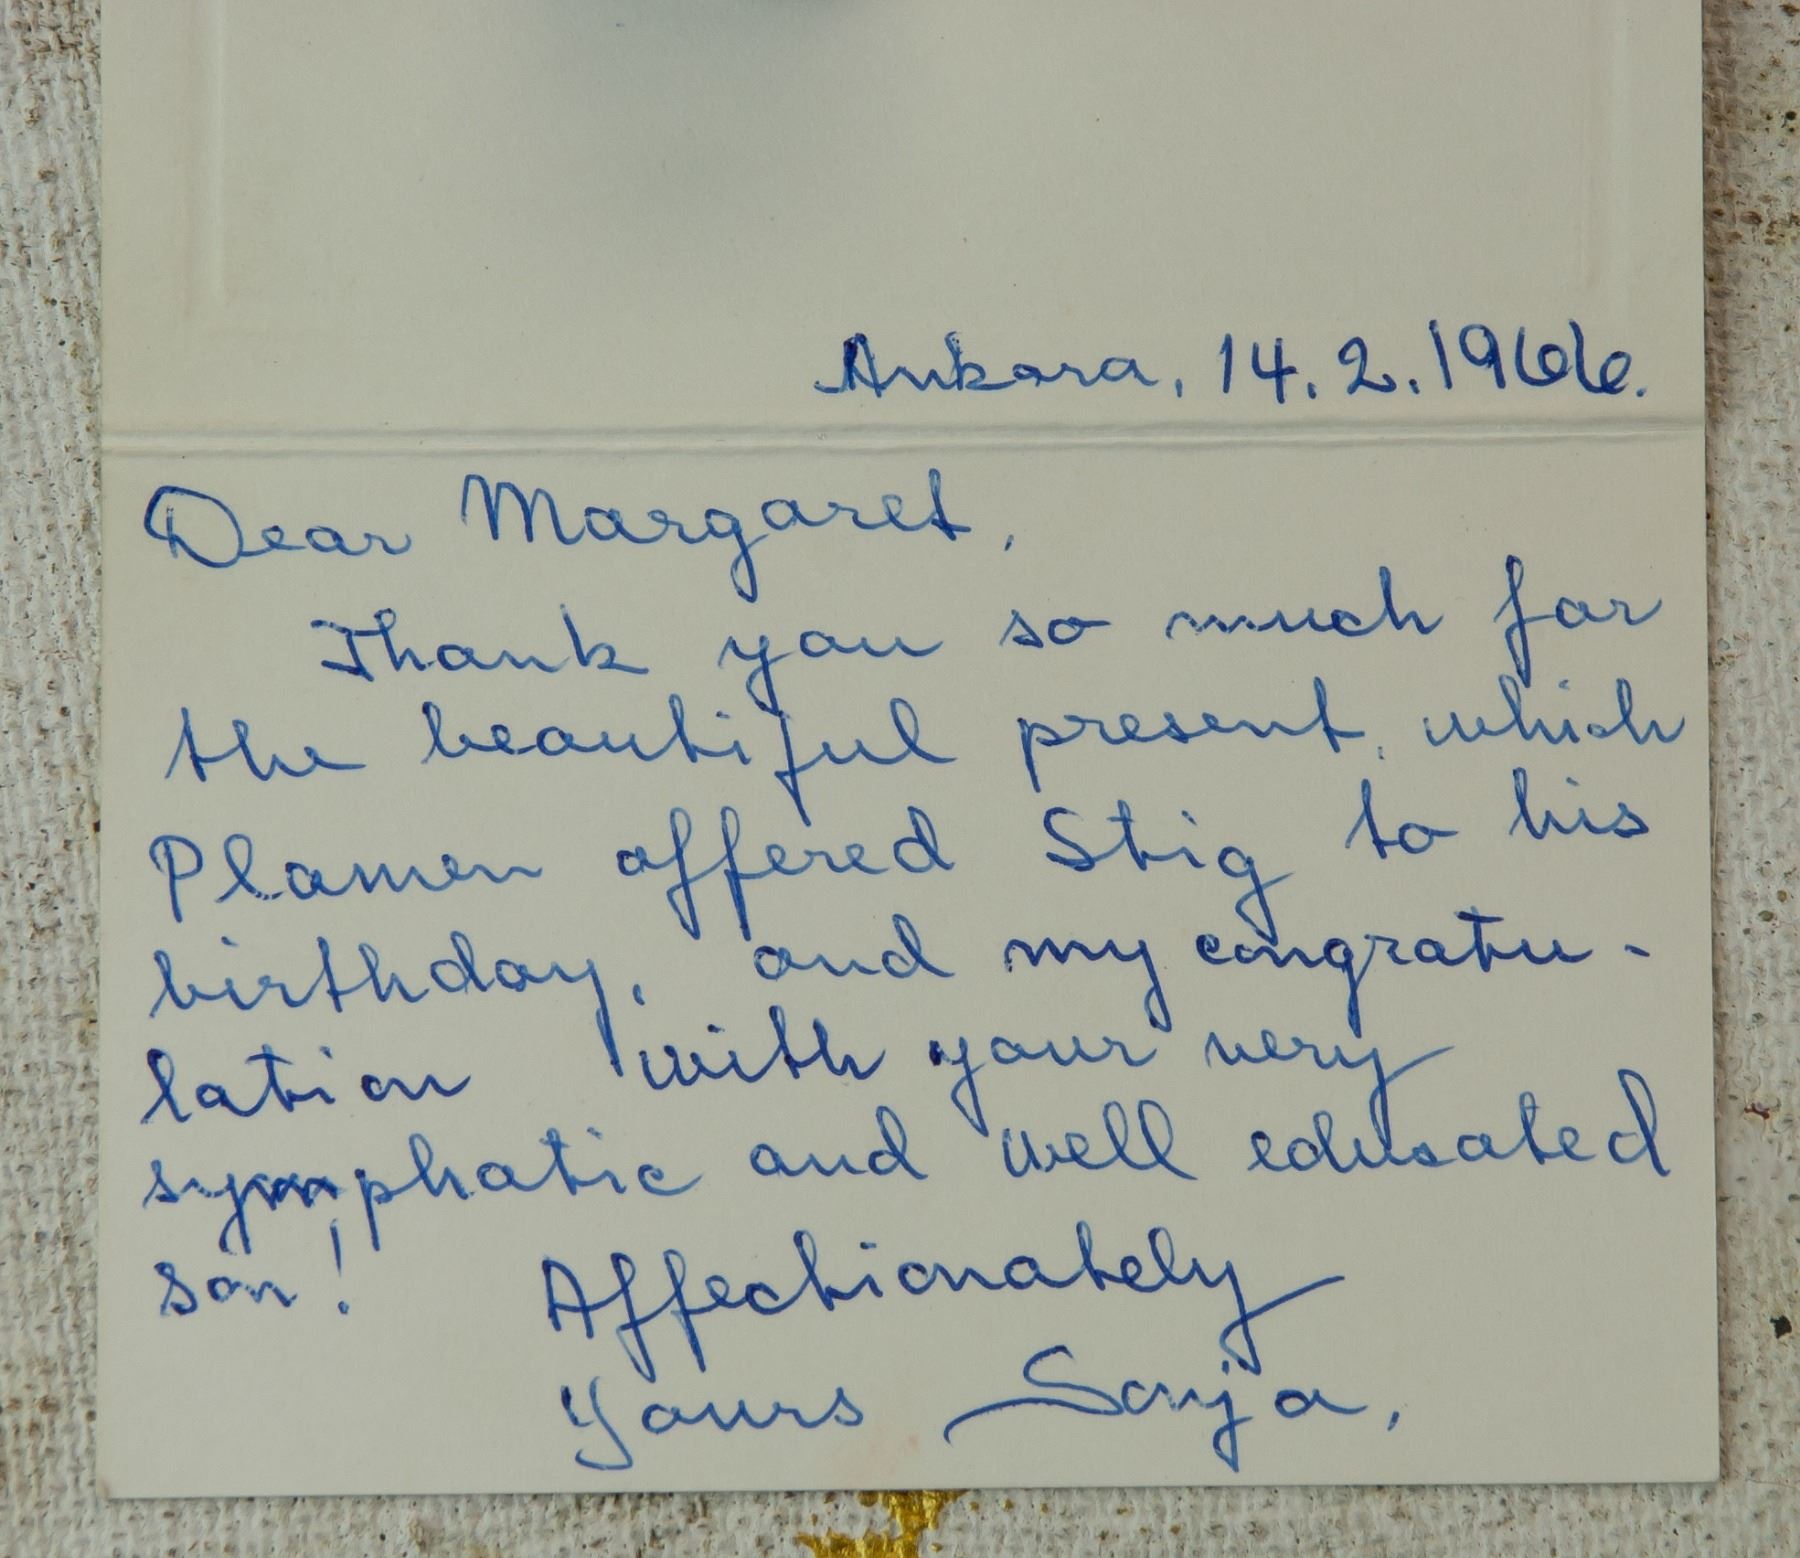 Ankara, 14.2.1966.
Dear Margaret,
Thank you so much for
the beautiful present, which
Plamen offered Stig to his
birthday, and my congratu-
lation with your very
symphatic and well educated
son! Affectionately
Yours Sonja,